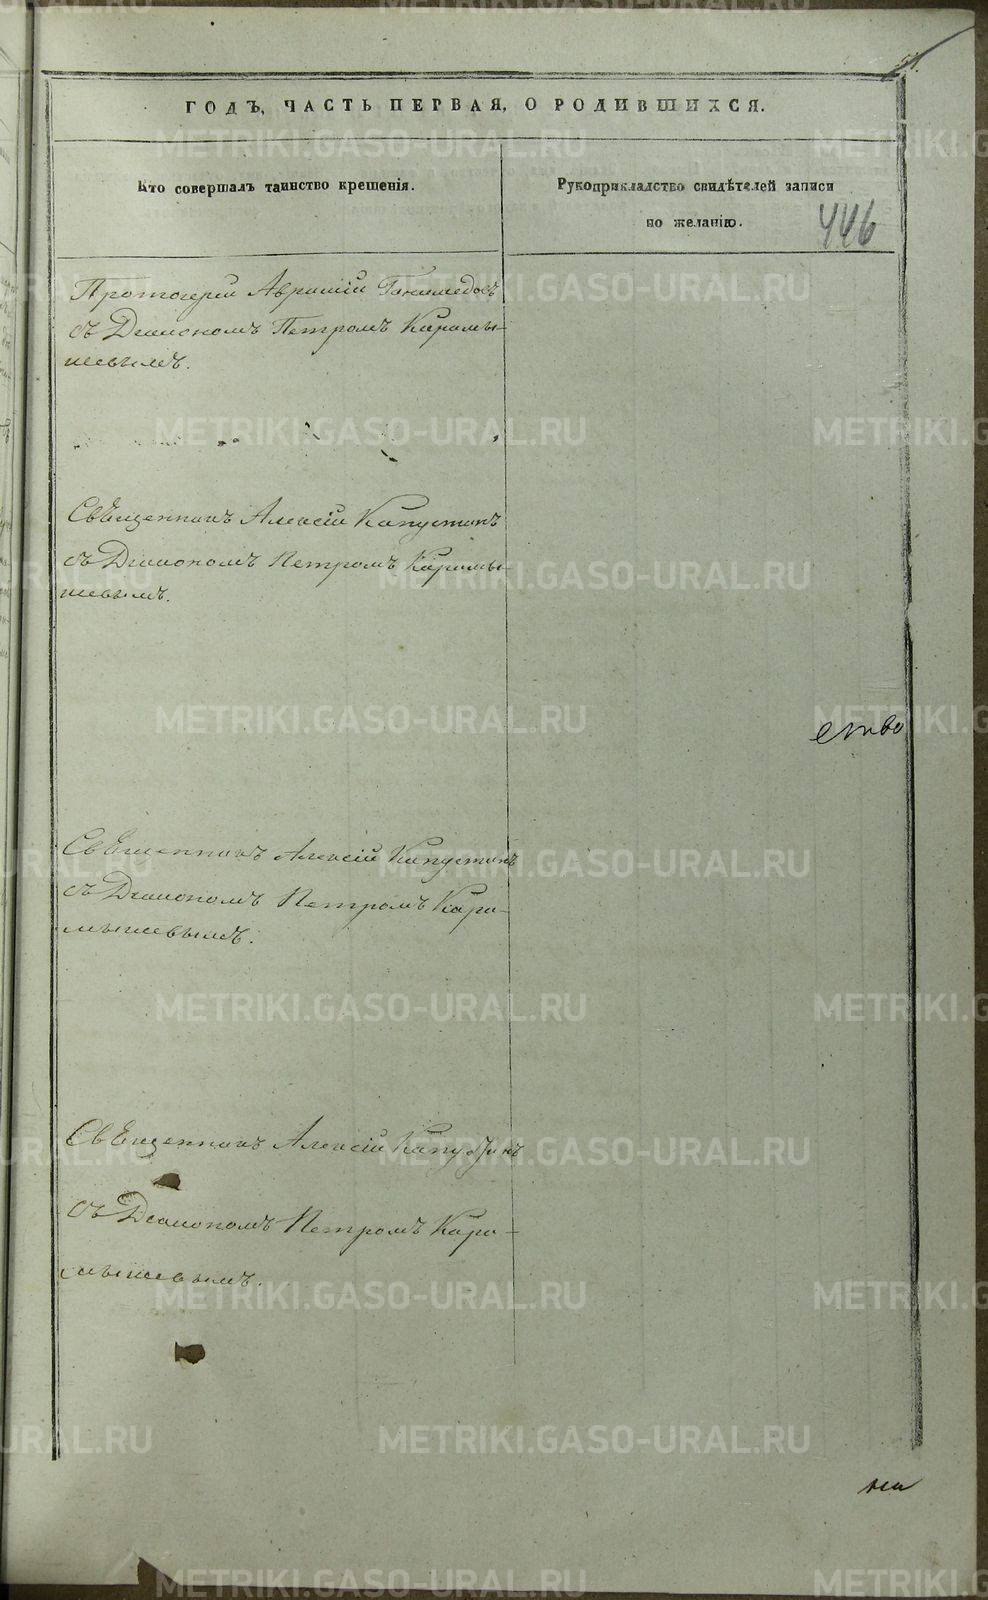 ГОДЪ, ЧАСТЬ ПЕРВАЯ, О РОДИВШИХСЯ.
Кто совершалъ таинство крещенія.
Рукоприкладство свидѣтелей записи
по желанію.
446
Протоіерей Авраамій
съ Діакономъ Петромъ Карамы-
шевымъ.
Священникъ Алексій Капустинъ
съ Діакономъ Петромъ Карамы-
шевымъ.
ство
Священникъ Алексій Капустинъ
съ Діакономъ Петромъ Кара-
мышевымъ.
Священникъ Алексій Капустинъ
съ Діакономъ Петромъ Кара-
мышевымъ.
METRIKI.GASO-URAL.RU